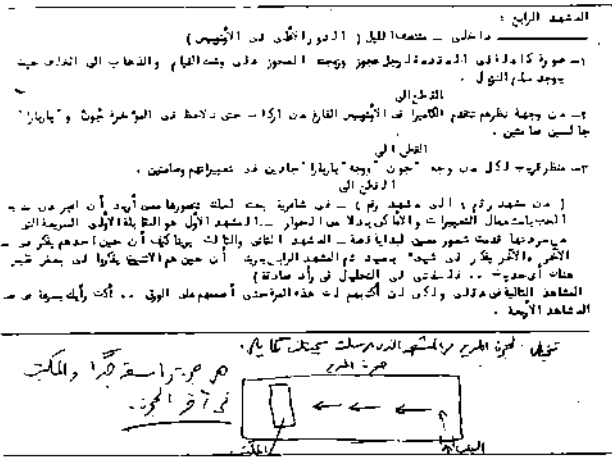 المشهد الرابع :
داخلى ــ منتصف الليل ( الدور الأعلى فى الأتوبيس )
١ــ صورة كاملة فى المقدمة لرجل عجوز وزوجته العجوز على وشك القيام والذهاب الى الخلف حيث
يوجد سلم النزول .
القطع الى
٢ــ من وجهة نظرهم تتقدم الكاميرا فى الأتوبيس الفارغ من الركاب حتى نلاحظ فى المؤخرة جون و " باربارا "
جالسين صامتين .
القطع الى
٣ــ منظر قريب لكل من وجه " جون " ووجه " باربارا " جادين فى تعبيراتهم وصامتين .
القطع الى
( من مشهد رقم ١ الى مشهد رقم ) ــ فى شاعرية بحتة أريد أن اعبر عن
الحب باستعمال التعبيرات والأماكن بدلا من الحوار ــ المشهد الأول هو المقابلة الأولى السريعة التى
قدمت شعور معين لبداية قصة ــ المشهد الثانى والثالث يرينا كيف أن حين احدهم يفكر فى
الآخر والآخر يفكر فى شىء بعيد ثم المشهد الرابع يرينا أن حين هم الاثنين يفكروا فى بعض فليس
هناك أى حديث ..
المشاهد التالية فى عقلى ولكن لن أكتبهم لك هذه المرة حتى أضعهم على الورق .. أكتب رأيك بسرعة فى
المشاهد الأربعة .
حجرة المدير
هى حجرة واسعة جدًا والمكتب
فى آخر الحجرة .
الباب
المكتب